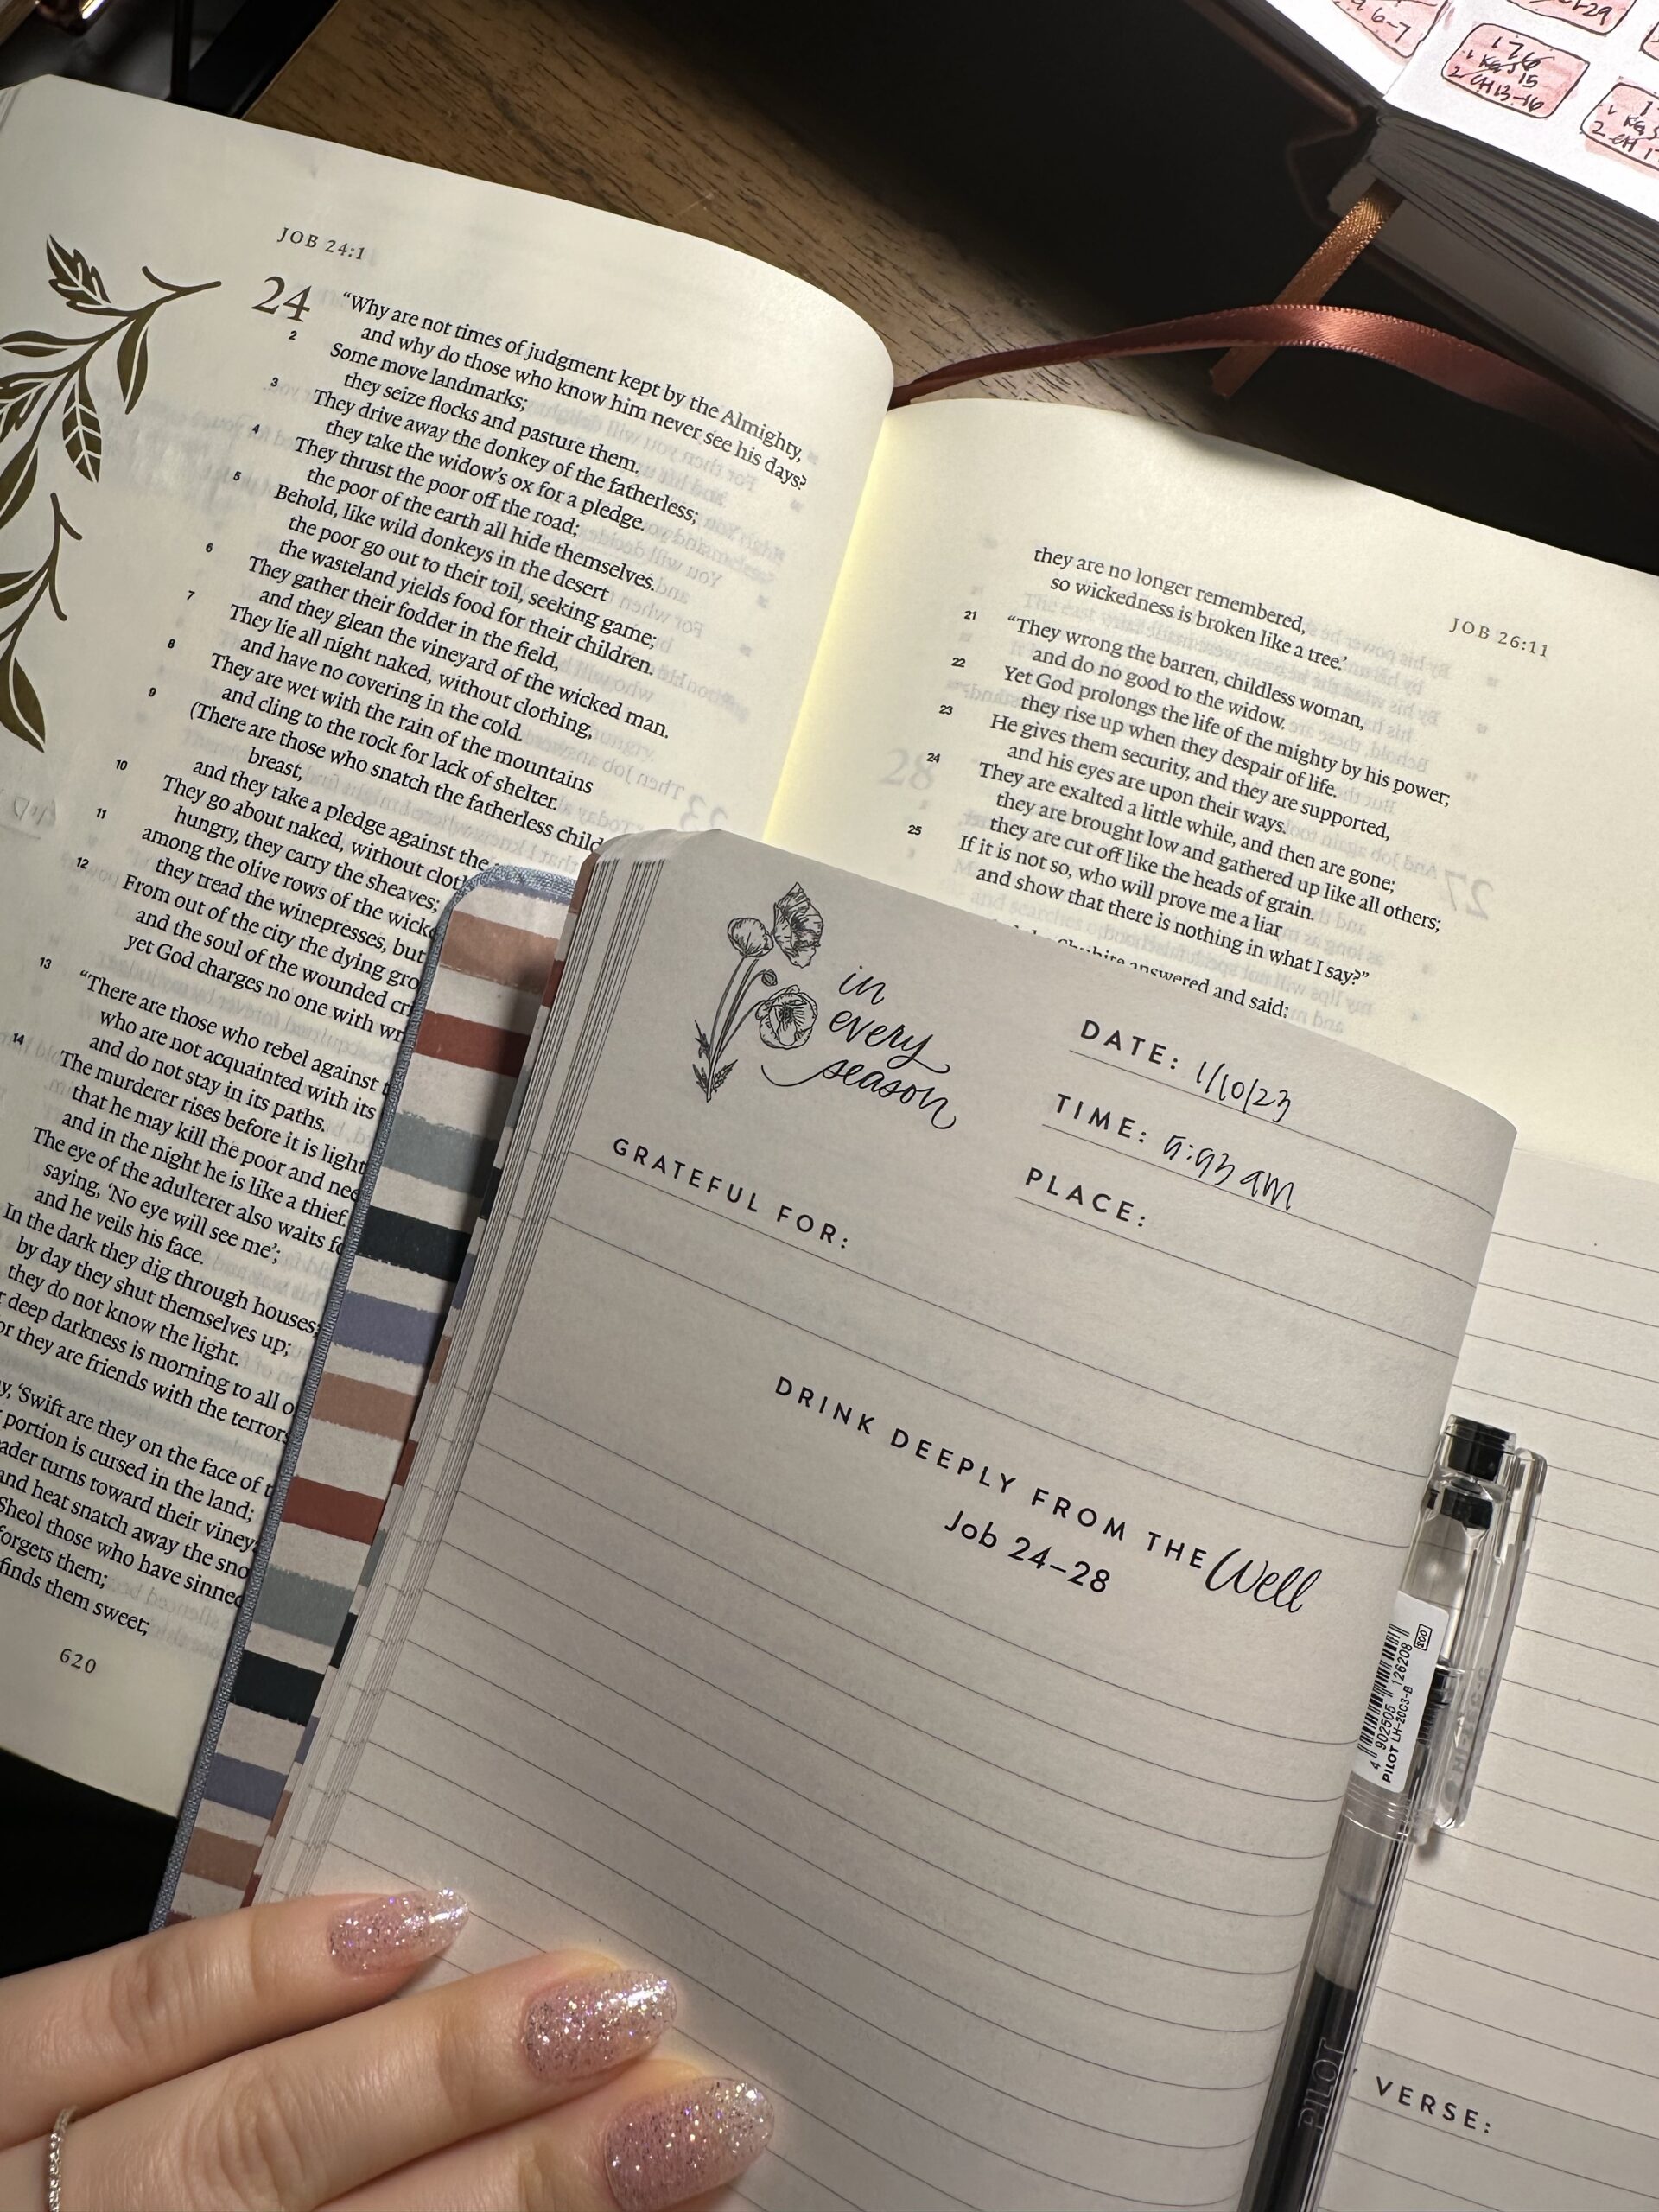 JOB 24:1
24 “Why are not times of judgment kept by the Almighty,
and why do those who know him never see his days?
2 Some move landmarks;
they seize flocks and pasture them.
3 They drive away the donkey of the fatherless;
they take the widow’s ox for a pledge.
4 They thrust the poor off the road;
the poor of the earth all hide themselves.
5 Behold, like wild donkeys in the desert
the poor go out to their toil, seeking game;
the wasteland yields food for their children.
6 They gather their fodder in the field,
and they glean the vineyard of the wicked man.
7 They lie all night naked, without clothing,
and have no covering in the cold.
8 They are wet with the rain of the mountains
and cling to the rock for lack of shelter.
9 (There are those who snatch the fatherless child
breast,
and they take a pledge against the
10 They go about naked, without
hungry, they carry the sheaves;
11 among the olive rows of the
they tread the winepresses, but
12 From out of the city the dying
and the soul of the wounded
yet God charges no one with
13 “There are those who rebel against
who are not acquainted with its
and do not stay in its paths.
14 The murderer rises before it is light
that he may kill the poor and
and in the night he is like a thief.
The eye of the adulterer also waits
saying, ‘No eye will see me’;
and he veils his face.
In the dark they dig through houses;
by day they shut themselves up;
they do not know the light.
deep darkness is morning to all
they are friends with the
‘Swift are they on the face of
portion is cursed in the land;
turns toward their
and heat snatch away the
Sheol those who have sinned
forgets them;
finds them sweet;
620
JOB 26:11
they are no longer remembered,
so wickedness is broken like a tree.’
21 “They wrong the barren, childless woman,
and do no good to the widow.
22 Yet God prolongs the life of the mighty by his power;
they rise up when they despair of life.
23 He gives them security, and they are supported,
and his eyes are upon their ways.
24 They are exalted a little while, and then are gone;
they are brought low and gathered up like all others;
they are cut off like the heads of grain.
25 If it is not so, who will prove me a liar
and show that there is nothing in what I say?”
answered and said:
6-7
29
1.7.6
1 Kgs 15
2 CH 13-16
1 Kgs
2 CH
in
every
season
DATE: 1/10/23
TIME: 5:93 am
PLACE:
GRATEFUL FOR:
DRINK DEEPLY FROM THE Well
Job 24–28
VERSE:
4 902505 126208
PILOT LH-20C3-B
PILOT